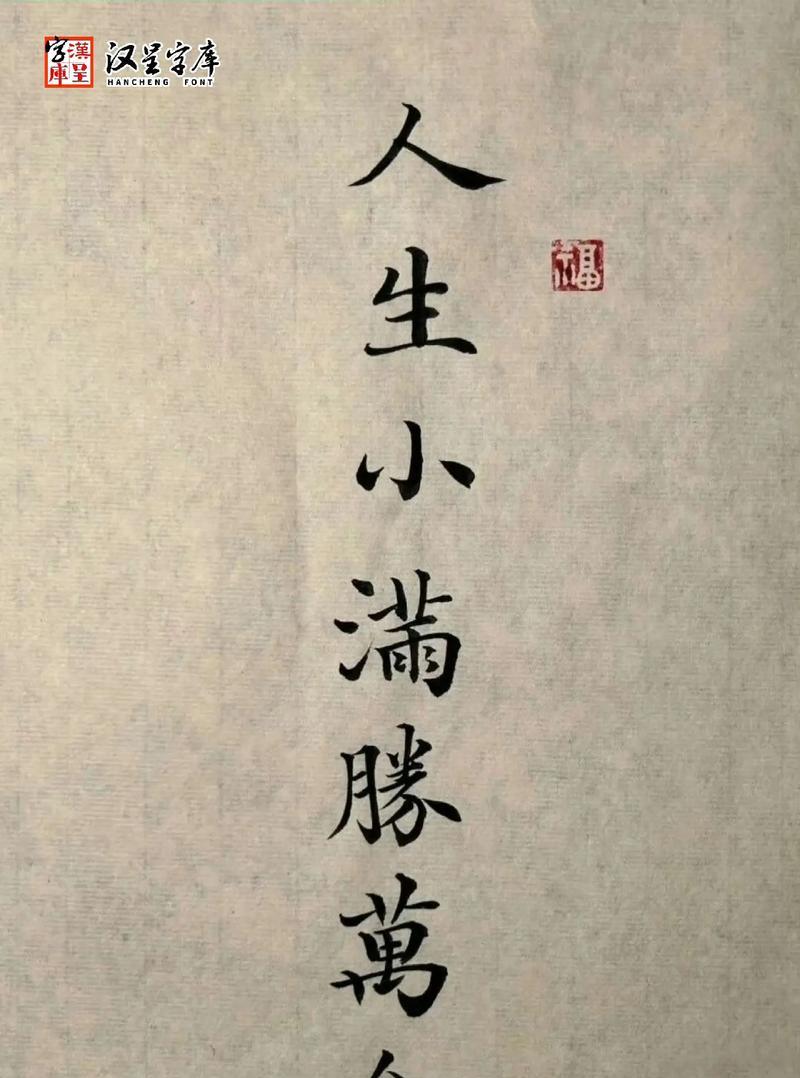 字庫
漢呈
汉呈字库
HANCHENG FONT
人生小滿勝萬
福